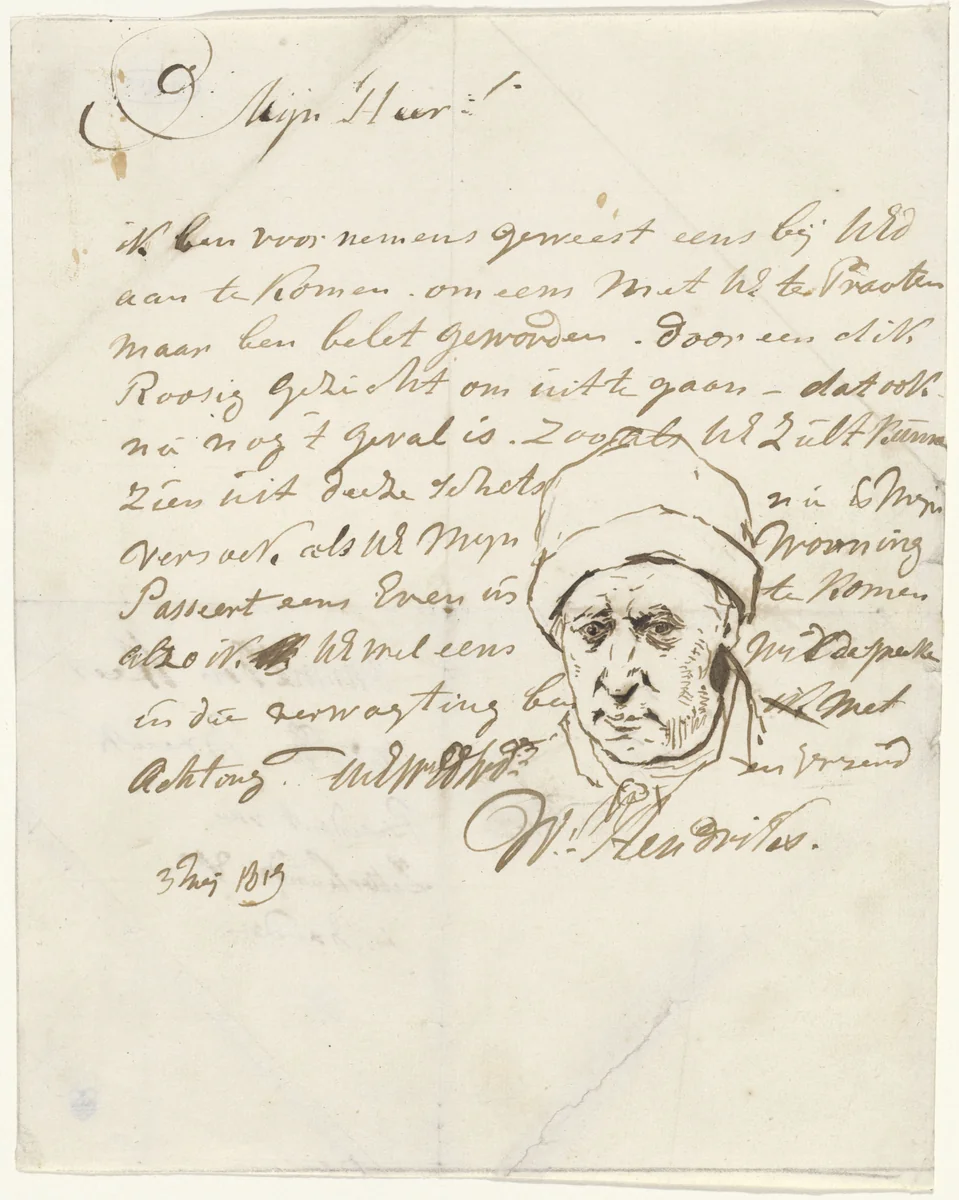 Mijn Heer
ik ben voornemens geweest eens bij UEd
aan te komen. om eens Met UE te Praaten
maar ben belet geworden. door een dik
Roosig Gezicht om uit te gaan - dat ook
nu nog t geval is. Zoo als UE Zult kunne
Zien uit deeze schets nu is Myn
versoek als UE Myn Wooning
Passeert eens Even in te komen
alzo ik UE wel eens wilde spreeke
in die verwagting ben ik met
Achting. en vriend
Wr. Hendriks.
3 Mei 1819